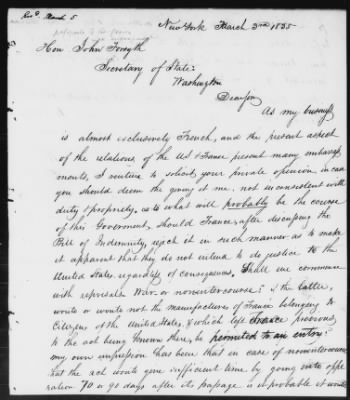 Recd. March 5
New York March 3rd 1835
Hon John Forsyth
Secretary of State:
Washington
Dear Sir
As my business
is almost exclusively French, and the present aspect
of the relations of the US & France present many embarrass
ments, I venture to solicit your private opinion in case
you should deem the giving it me. not inconsistent with
duty & propriety. as to what will probably be the course
of this Government, should France, after discussing the
Bill of Indemnity, reject it in such manner as to make
it apparent that they do not intend to do justice to the
United States regardless of consequences. Shall we commence
with reprisals War or nonintercourse? if the latter,
would or would not the manufactures of France belonging to
Citizens of the United States, & which left France previous
to the act being known there, be permitted to an entry?
my own impression has been that in case of nonintercourse
that the act would give sufficient time by going into ope
ration 70 or 90 days after its passage is it probable it would